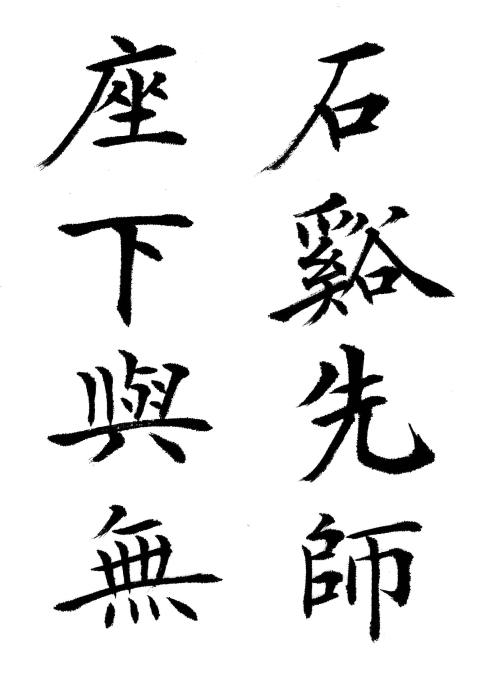 石谿先師
座下與無